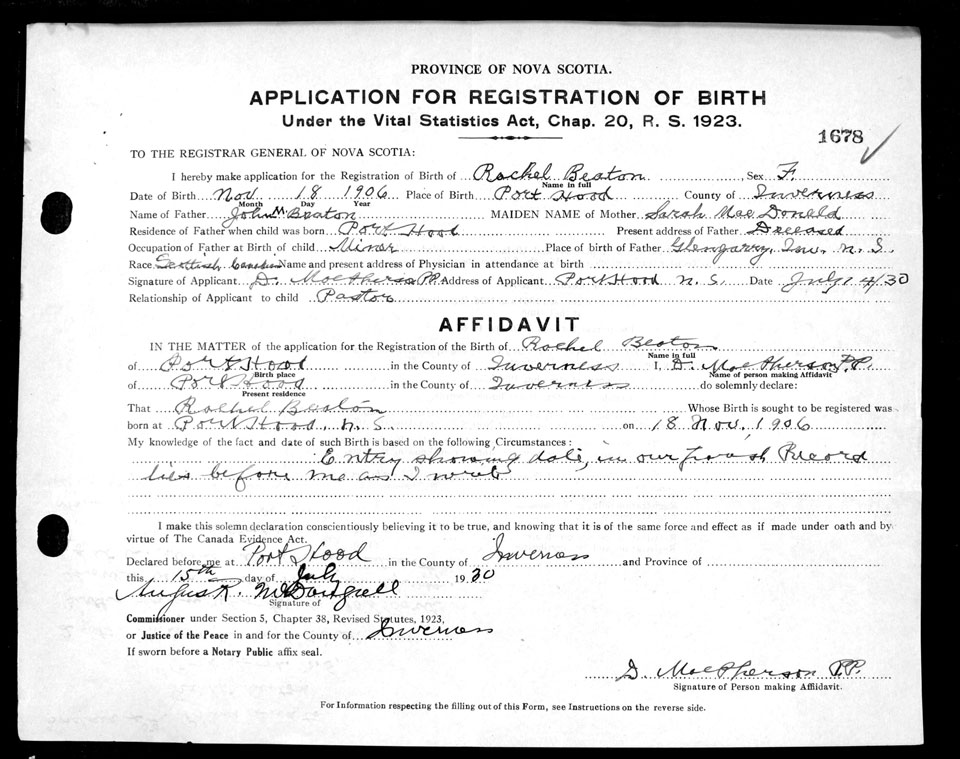 PROVINCE OF NOVA SCOTIA.
APPLICATION FOR REGISTRATION OF BIRTH
Under the Vital Statistics Act, Chap. 20, R. S. 1923.
1678 ✓
TO THE REGISTRAR GENERAL OF NOVA SCOTIA:
I hereby make application for the Registration of Birth of Rachel Beaton Sex F.
Name in full
Date of Birth Nov 18 1906 Place of Birth Port Hood County of Inverness
Month Day Year
Name of Father John M Beaton MAIDEN NAME of Mother Sarah Mac Donald
Residence of Father when child was born Port Hood Present address of Father Deceased
Occupation of Father at Birth of child Miner Place of birth of Father Glengarry, Inv. N. S.
Race Scottish Name and present address of Physician in attendance at birth
Signature of Applicant D. MacPherson PP. Address of Applicant Port Hood N. S. Date July 14/30
Relationship of Applicant to child Pastor
AFFIDAVIT
IN THE MATTER of the application for the Registration of the Birth of Rachel Beaton
Name in full
of Port Hood in the County of Inverness I, D. MacPherson P.P.
Birth place Name of person making Affidavit
of Port Hood in the County of Inverness do solemnly declare:
Present residence
That Rachel Beaton Whose Birth is sought to be registered was
born at Port Hood, N. S. on 18 Nov, 1906
My knowledge of the fact and date of such Birth is based on the following Circumstances:
Entry showing date, in our Parish Record
lies before me as I write
I make this solemn declaration conscientiously believing it to be true, and knowing that it is of the same force and effect as if made under oath and by
virtue of The Canada Evidence Act.
Declared before me at Port Hood in the County of Inverness and Province of
this 15th day of July 1930
Angus R. McDougall
Signature of
Commissioner under Section 5, Chapter 38, Revised Statutes, 1923,
or Justice of the Peace in and for the County of Inverness
If sworn before a Notary Public affix seal.
D. MacPherson P.P.
Signature of Person making Affidavit.
For Information respecting the filling out of this Form, see Instructions on the reverse side.